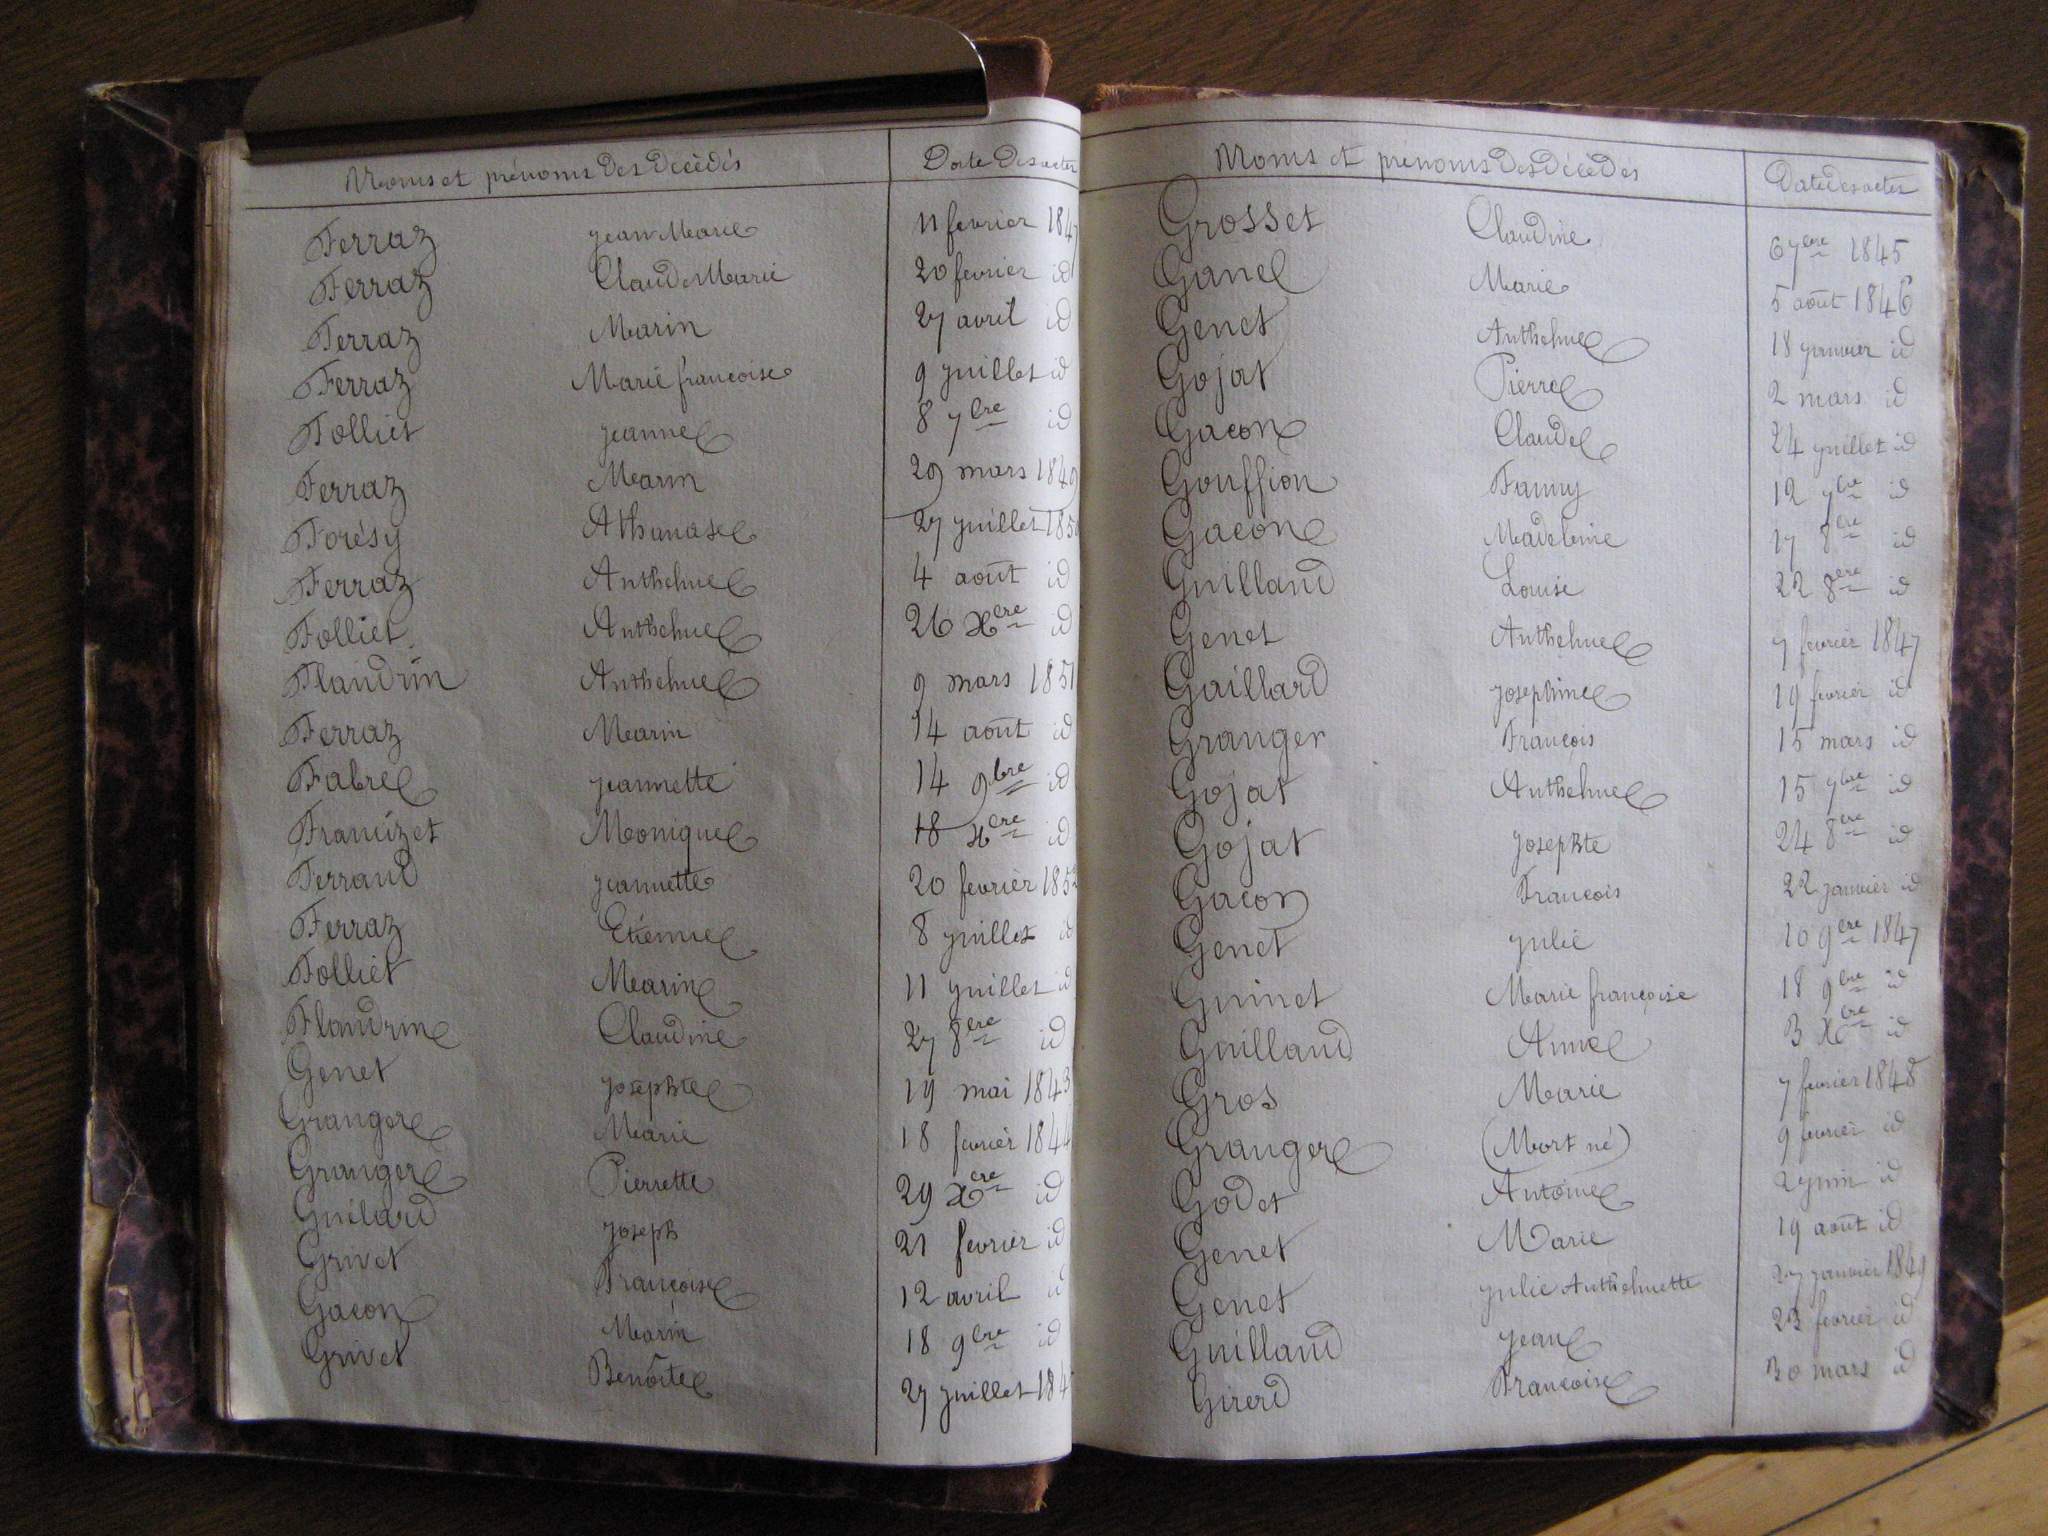 Noms et prénoms des décédés Date des actes
Ferraz jean Marie 11 fevrier 1847
Ferraz Claude Marie 20 fevrier id
Ferraz Marin 27 avril id
Ferraz Marie françoise 9 juillet id
Folliet jeanne 8 7bre id
Ferraz Marin 29 mars 1849
Forésy Athanase 27 juillet 185
Ferraz Anthelme 4 août id
Folliet Anthelme 26 Xbre id
Flandrin Anthelme 9 mars 1851
Ferraz Marin 14 août id
Fabre jeannette 14 9bre id
Francizet Monique 18 Xbre id
Ferrand jeannette 20 fevrier 1852
Ferraz Etienne 8 juillet id
Folliet Marin 11 juillet id
Flandrin Claudine 27 8bre id
Genet josephte 19 mai 1843
Granger Marie 18 fevrier 1844
Granger Pierrette 29 Xbre id
Guilard joseph 21 fevrier id
Grivet Françoise 12 avril id
Gacon Marin 18 9bre id
Grivet Benoîte 27 juillet 184
Noms et prénoms des décédés Date des actes
Grosset Claudine 6 7bre 1845
Ganel Marie 5 août 1846
Genet Anthelme 18 janvier id
Gojat Pierre 2 mars id
Gacon Claude 24 juillet id
Gouffion Fanny 12 7bre id
Gacon Madeleine 17 8bre id
Guilland Louise 22 8bre id
Genet Anthelme 7 fevrier 1847
Gaillard josephine 19 fevrier id
Granger François 15 mars id
Gojat Anthelme 15 7bre id
Gojat josephte 24 8bre id
Gacon François 22 janvier id
Genet julie 10 9bre 1847
Guinet Marie françoise 18 9bre id
Guilland Anne 3 Xbre id
Gros Marie 7 fevrier 1848
Granger (Mort né) 9 fevrier id
Godet Antoine 2 juin id
Genet Marie 19 août id
Genet julie Anthelmette 27 janvier 1849
Guilland jean 23 fevrier id
Girerd Françoise 30 mars id